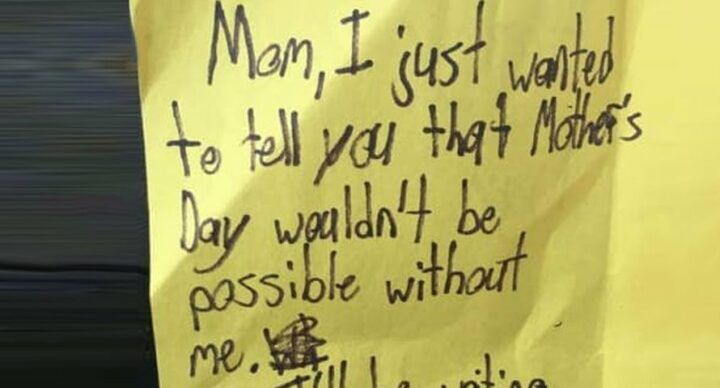 Mom, I just wanted
to tell you that Mother's
Day wouldn't be
possible without
me.
I'll be